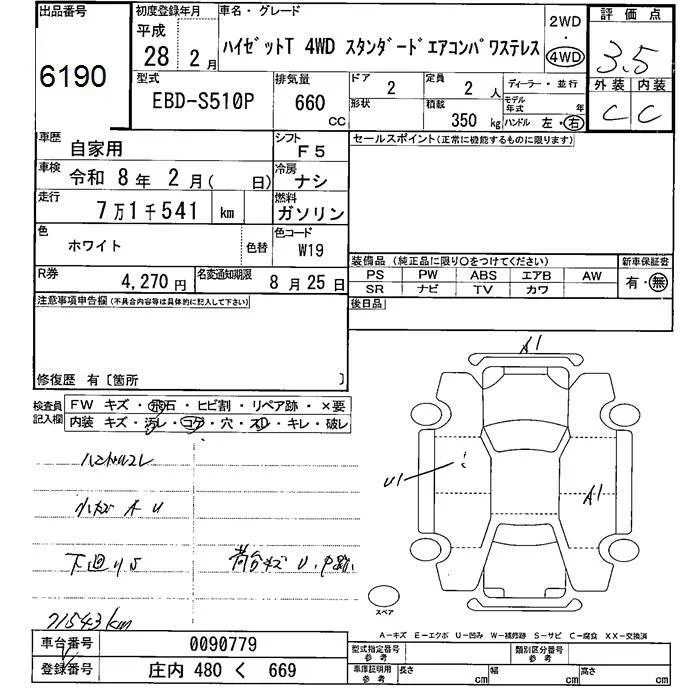 出品番号
6190
初度登録年月
平成
28 2 月
車名・グレード
ハイゼットT 4WD スタンダードエアコンパワステレス
2WD
・
4WD
評価点
3.5
外装 内装
C C
型式
EBD-S510P
排気量
660
CC
ドア
2
形状
定員
2 人
積載
350 kg
ディーラー・並行
モデル
年式 年
ハンドル 左・右
車歴
自家用
シフト
F5
セールスポイント(正常に機能するものに限ります)
車検
令和 8年 2月( 日)
冷房
ナシ
走行
7万1千541 km
燃料
ガソリン
色
ホワイト
色替
色コード
W19
装備品 (純正品に限り○をつけてください)
PS PW ABS エアB AW
SR ナビ TV カワ
新車保証書
有・無
R券
4,270円
名変通知期限
8月25日
後日品
注意事項申告欄(不具合内容等は具体的に記入して下さい)
修復歴 有〔箇所 〕
検査員
記入欄
FW キズ・飛石・ヒビ割・リペア跡・×要
内装 キズ・汚レ・コゲ・穴・スレ・キレ・破レ
ハンドルスレ
小キズ A U
下廻りS
荷台キズ U・P跡
71543km
A1
U1
A1
スペア
A-キズ E-エクボ U-凹み W-補修跡 S-サビ C-腐食 XX-交換済
車台番号
0090779
登録番号
庄内 480 く 669
型式指定番号
参考
類別区分番号
参考
車庫証明用
参考
長さ cm
幅 cm
高さ cm